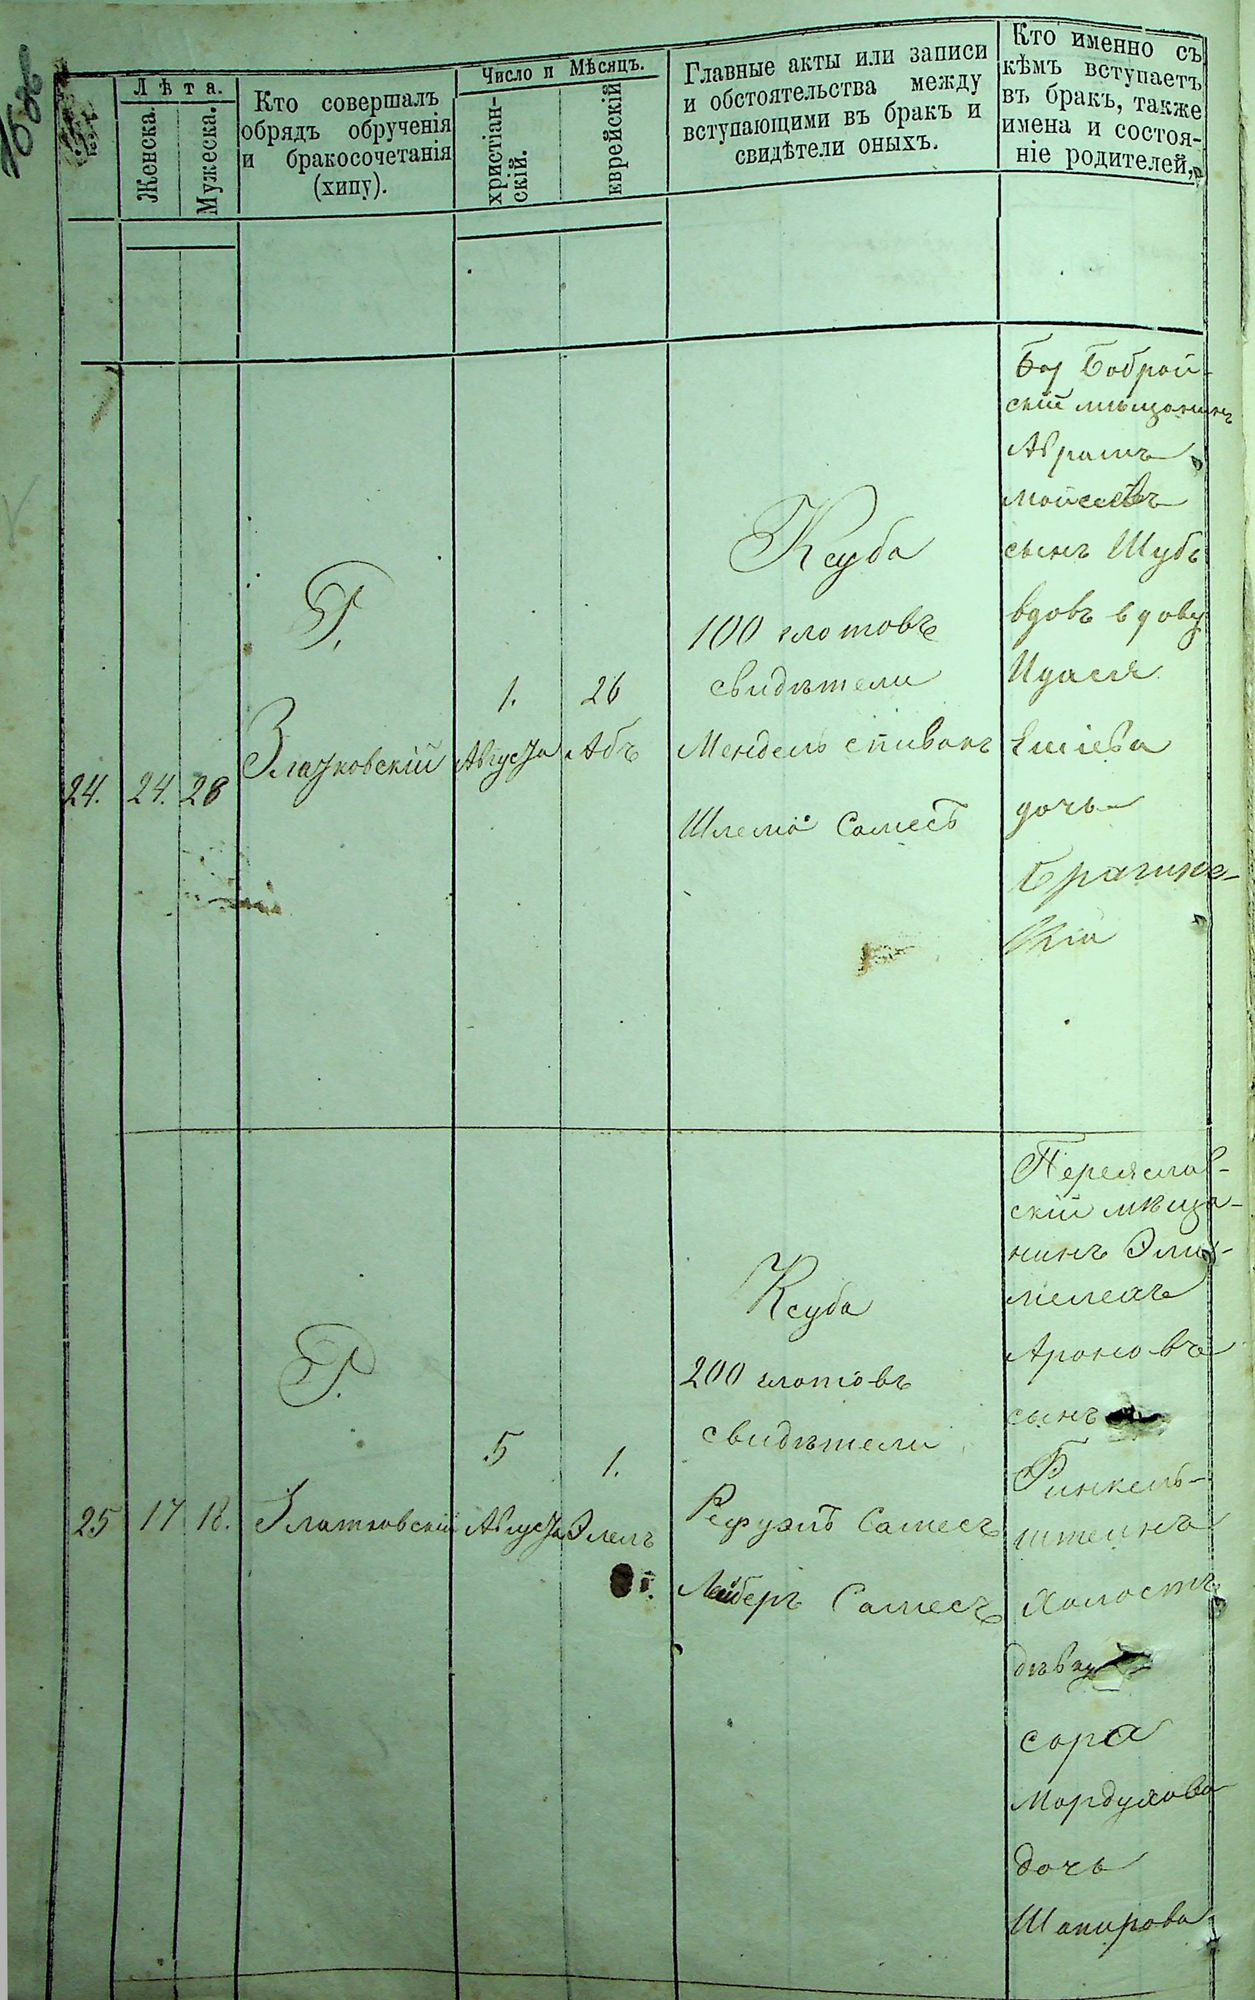 Лѣта.
Женска.
Мужеска.
Кто совершалъ
обрядъ обрученія
и бракосочетанія
(хипу).
Число и Мѣсяцъ.
христіан-
скій.
еврейскій
Главные акты или записи
и обстоятельства между
вступающими въ бракъ и
свидѣтели оныхъ.
Кто именно съ
кѣмъ вступаетъ
въ бракъ, также
имена и состоя-
ніе родителей,
24.
24.
28
Р.
Златковскій
1.
Августа
26
Абъ
Ксуба
100 злотовъ
свидѣтели
Мендель Спивакъ
Шлема Самесъ
скій мѣщанинъ
Абрамъ
Мойсеевъ
сынъ Шубъ
вдовъ вдову
дочь
25
17
18.
Р.
Златковскій
5
Августа
1.
Элелъ
Ксуба
200 злотовъ
свидѣтели
Рефуэлъ Самесъ
Лейберъ Самесъ
Переяслав-
скій мѣща-
нинъ Эли-
мелехъ
Ароновъ
сынъ
Финкель-
штейнъ
холостъ
дѣвку
Сора
Мордухова
дочь
Шапирова